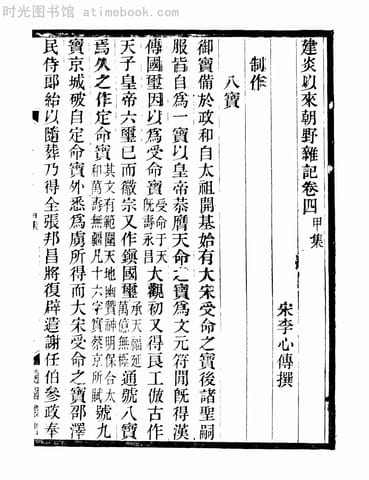 时光图书馆 atimebook.com
建炎以來朝野雜記卷四 甲集
宋李心傳撰
制作
八寶
御寶備於政和自太祖開基始有大宋受命之寶後諸聖嗣
服皆自爲一寶以皇帝恭膺天命之寶爲文元符閒旣得漢
傳國璽因以爲受命寶 受命于天旣壽永昌 大觀初又得良工倣古作
天子皇帝六璽已而徽宗又作鎭國璽 承天福延萬億無極 通號八寶
爲久之作定命寶 其文有範圍天地幽贊神明保合太和萬壽無疆凡十六字實蔡京所賦 號九
寶京城破自定命寶外悉爲虜所得而大宋受命之寶邵澤
民侍郎紿以隨葬乃得全張邦昌將復辟遣謝任伯參政奉